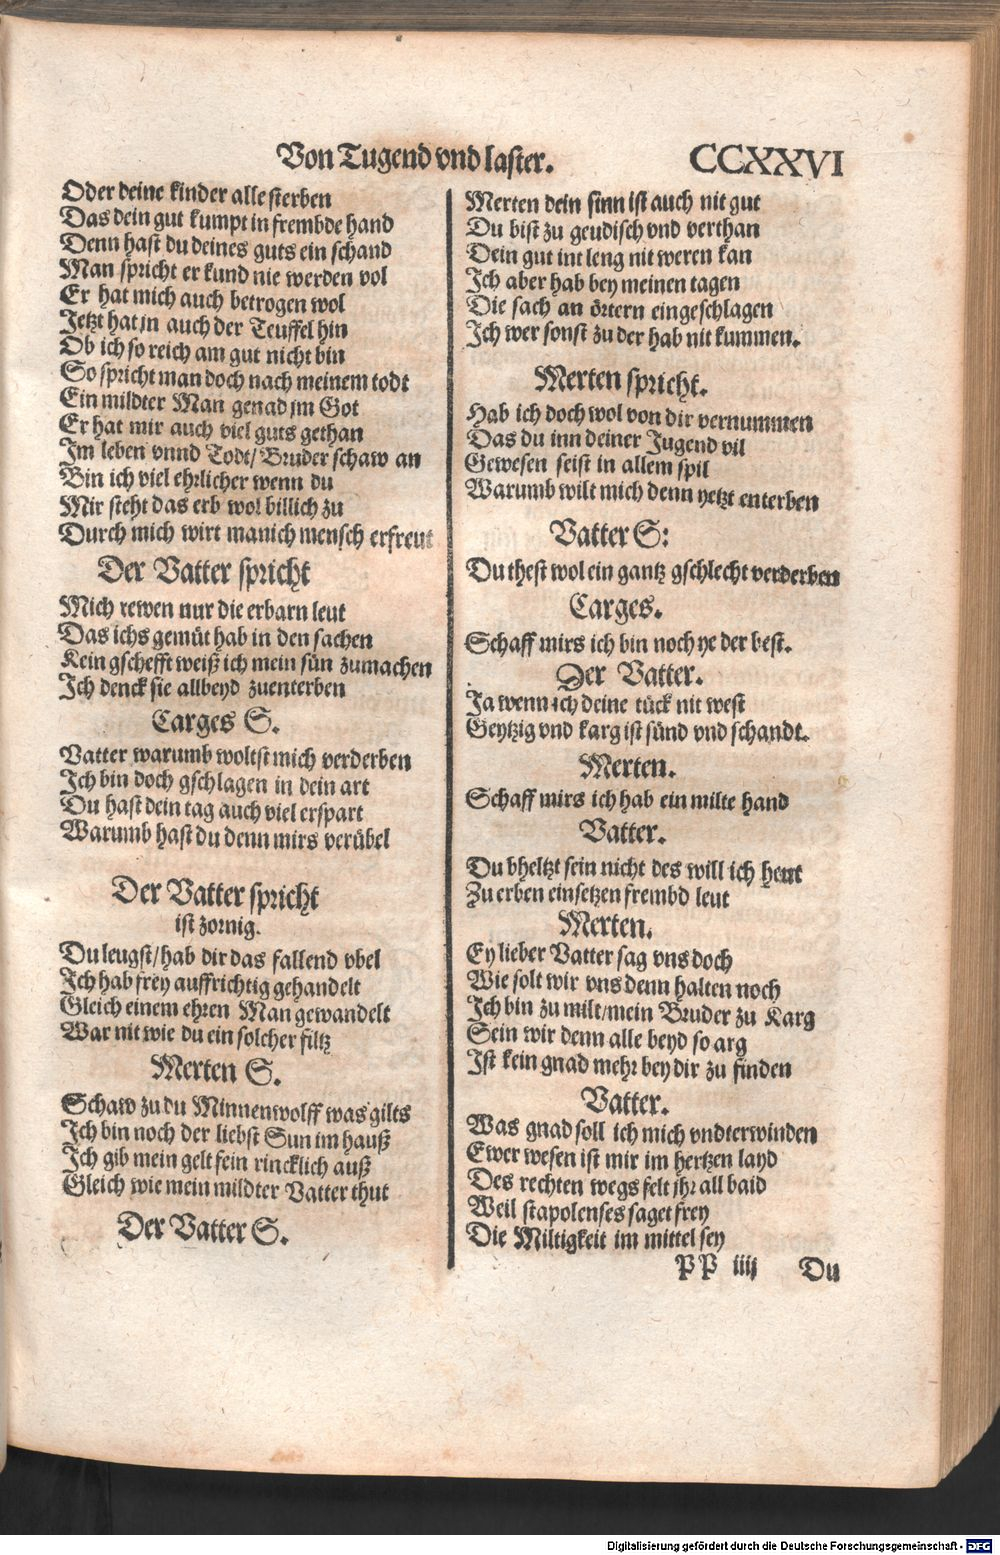 Von Tugend vnd laster. CCXXVI
Oder deine kinder alle sterben
Das dein gut kumpt in frembde hand
Denn hast du deines guts ein schand
Man spricht er kund nie werden vol
Er hat mich auch betrogen wol
Jetzt hat jn auch der Teuffel hin
Ob ich so reich am gut nicht bin
So spricht man doch nach meinem todt
Ein mildter Man genad jm Got
Er hat mir auch viel guts gethan
Im leben vnnd Todt/ Bruder schaw an
Bin ich viel ehrlicher wenn du
Mir steht das erb wol billich zu
Durch mich wirt manich mensch erfreut
Der Vatter spricht
Mich rewen nur die erbarn leut
Das ichs gemüt hab in den sachen
Kein gschefft weiß ich mein sün zumachen
Ich denck sie allbeyd zuenterben
Carges S.
Vatter warumb woltst mich verderben
Ich bin doch gschlagen in dein art
Du hast dein tag auch viel erspart
Warumb hast du denn mirs verübel
Der Vatter spricht
ist zornig.
Du leugst/ hab dir das fallend vbel
Ich hab frey auffrichtig gehandelt
Gleich einem ehren Man gewandelt
War nit wie du ein solcher filtz
Merten S.
Schaw zu du Minnenwolff was gilts
Ich bin noch der liebst Sun im hauß
Ich gib mein gelt fein rincklich auß
Gleich wie mein mildter Vatter thut
Der Vatter S.
Merten dein sinn ist auch nit gut
Du bist zu geudisch vnd verthan
Dein gut int leng nit weren kan
Ich aber hab bey meinen tagen
Die sach an örtern eingeschlagen
Ich wer sonst zu der hab nit kummen.
Merten spricht.
Hab ich doch wol von dir vernummen
Das du inn deiner Jugend vil
Gewesen seist in allem spil
Warumb wilt mich denn yetzt enterben
Vatter S:
Du thest wol ein gantz gschlecht verderben
Carges.
Schaff mirs ich bin noch ye der best.
Der Vatter.
Ja wenn ich deine tück nit west
Geytzig vnd karg ist sünd vnd schandt.
Merten.
Schaff mirs ich hab ein milte hand
Vatter.
Du bheltzt sein nicht des will ich heut
Zu erben einsetzen frembd leut
Merten.
Ey lieber Vatter sag vns doch
Wie solt wir vns denn halten noch
Ich bin zu milt/mein Bruder zu Karg
Sein wir denn alle beyd so arg
Ist kein gnad mehr bey dir zu finden
Vatter.
Was gnad soll ich mich vndterwinden
Ewer wesen ist mir im hertzen layd
Des rechten wegs felt jhr all baid
Weil stapolenses saget frey
Die Miltigkeit im mittel sey
PP iiij Du
Digitalisierung gefördert durch die Deutsche Forschungsgemeinschaft - DFG